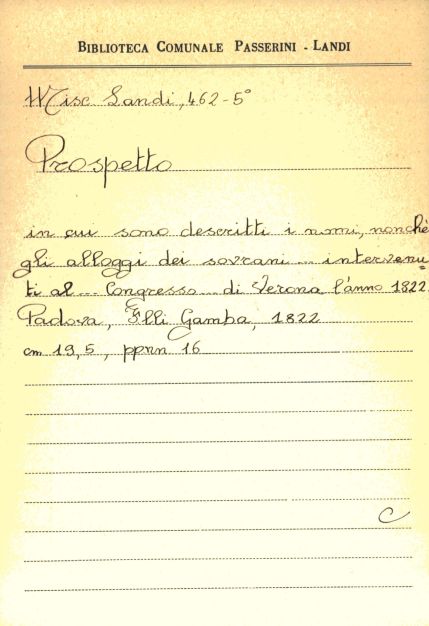 BIBLIOTECA COMUNALE PASSERINI - LANDI
Misc Landi, 462-5°
Prospetto
in cui sono descritti i nomi, nonchè
gli alloggi dei sovrani ... intervenu=
ti al ... Congresso ... di Verona l'anno 1822.
Padova, F.lli Gamba, 1822
cm 19,5, ppnn 16
C